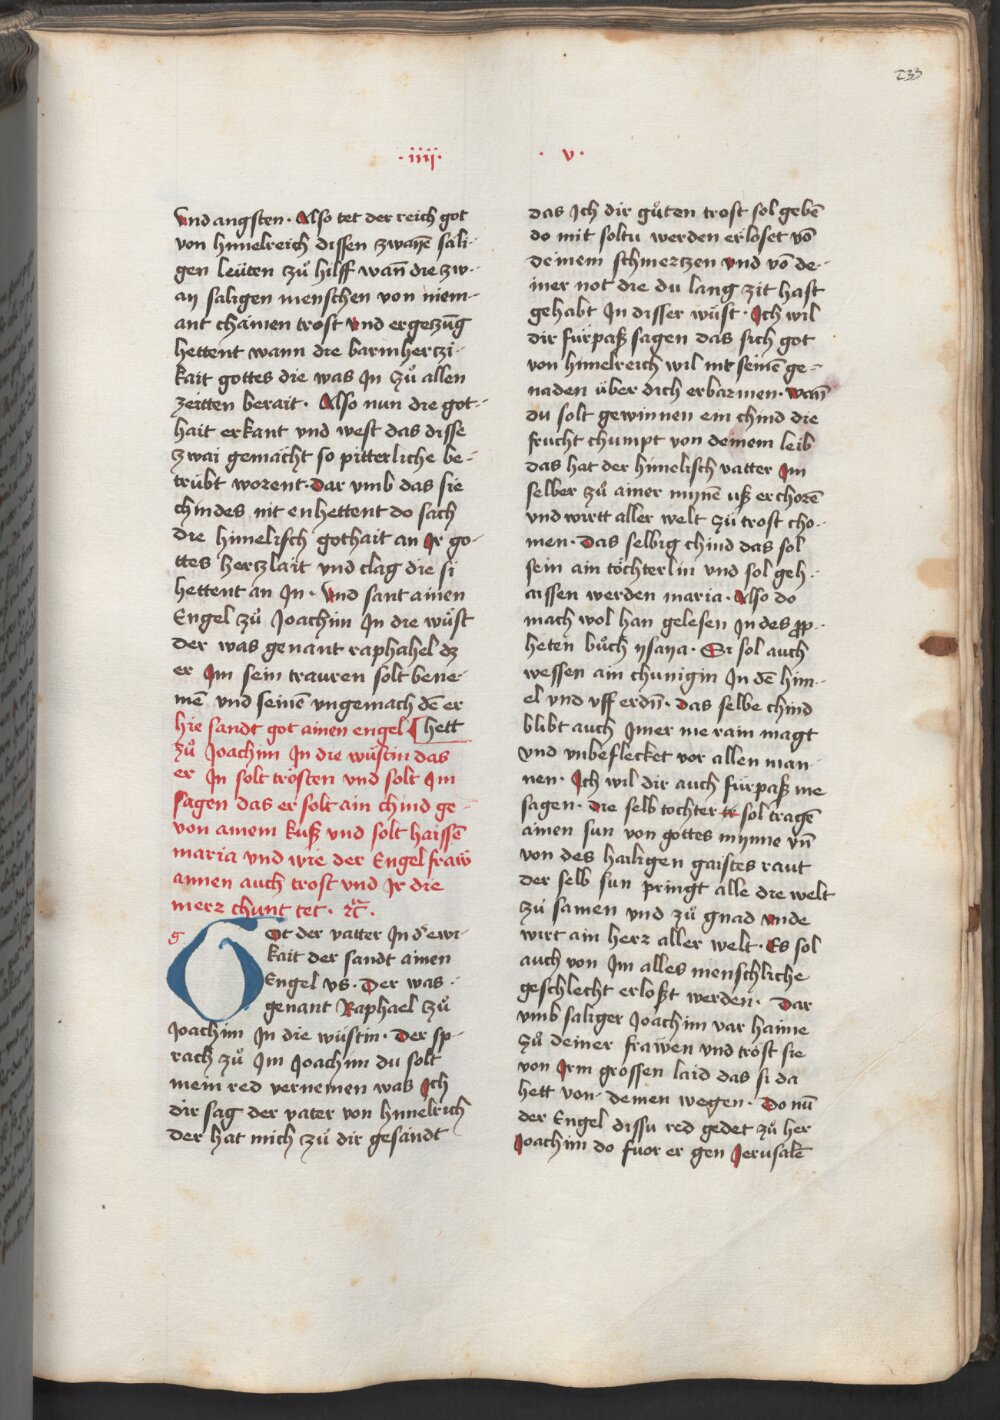 233
·iiij·
Vnd angsten· Also tet der reich got
von himelreich dissen zwaÿē sali-
gen leüten zů hilff wann̄ die zw-
aÿ saligen menschen von niem-
ant chämen trost vnd ergezūg
hettent wann die barmherczi-
kait gottes die was Jn zů allen
zeitten berait· Also nun die got-
hait erkant vnd west das disse
zwai gemächt so pitterliche be-
trübt worent· Dar vmb das sie
chindes nit enhettent do sach
die himelisch gothait an Jr go-
ttes herczlait vnd clag die si
hettent an Jn· Vnd sant ainen
Engel zů Joachim Jn die wůst
der was genant raphahel dz
er Jm sein trauren solt bene-
mē vnd seinē vngemach dē er
hett
hie sandt got ainen engel
zů Joachim Jn die wůstin das
er Jn solt trösten vnd solt Jm
sagen das er solt ain chind ge-
von ainem kuß vnd solt haissē
maria vnd wie der Engel fraw
annen auch trost vnd Jr die
merz chunt tet· ꝛc̄·
g
Got der vatter Jn d' ewi-
kait der sandt ainen
Engel vs· Der was
genant Raphael zů
Joachim Jn die wüstin· Der sp-
rach zů Jm Joachim du solt
mein red vernemen was Jch
dir sag der vater von himelrich
der hat mich zů dir gesandt
·v·
das Jch dir gůten trost sol gebē
do mit soltu werden erloset vō
deinem schmerczen vnd vō de-
iner not die du lang zit hast
gehabt Jn disser wůst· Jch wil
dir fürpaß sagen das sich got
von himelreich wil mit seinē ge-
naden über dich erbarmen· wan̄
du solt gewinnen ein chind die
frucht chumpt von deinem leib
das hat der himelisch vatter Jm
selber zů ainer mynē uß erchorē
vnd wirtt aller welt zů trost cho-
men· Das selbig chind das sol
sein ain töchterlin vnd sol geh-
aissen werden maria· Also do
mach wol han gelesen Jn des prop-
heten bůch ysaya· Si sol auch
wessen ain chunigin Jn dē him-
el vnd vff erdn̄· das selbe chind
blibt auch Jmer me rain magt
vnd vnbeflecket vor allen man-
nen· Jch wil dir auch fürpaß me
sagen· die selb tochter sol tragē
ainen sun von gottes mynne vn̄
von des hailigen gaistes raut
der selb sun pringt alle die welt
zů samen vnd zů gnad vnde
wirt ain herz aller welt· Es sol
auch von Jm alles menschliche
geschlecht erloßt werden· Dar
vmb saliger Joachim var haime
zů deiner fräwen vnd tröst sie
von Jrm grossen laid das si da
hett von deinen wegen· Do nū
der Engel dissu red gedet zů her
Joachim do fuor er gen Jerusalē